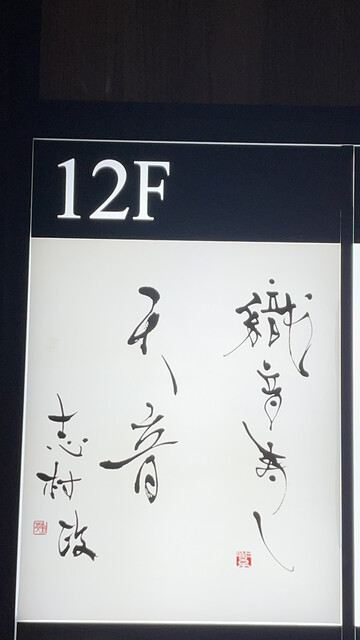 12F
織音寿し
天音
志村政